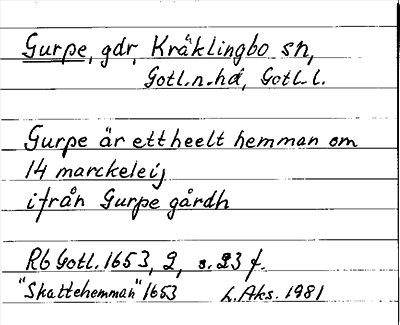 Gurpe, gdr, Kräklingbo sn,
Gotl.n.hd, Gotl. l.
Gurpe är ett heelt hemman om
14 marckeleij
ifrån Gurpe gårdh
Rb Gotl. 1653, 2, s. 23 f.
"Skattehemman" 1653 L. Aks. 1981